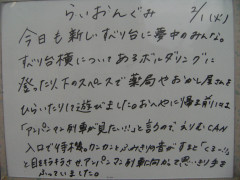 らいおんぐみ
2/1(火)
今日も新しいすべり台に夢中のみんな。
すべり台横についてあるボルダリングに
登ったり、下のスペースで薬局やおかし屋さんを
ひらいたりして遊びました。おへやに帰る前には
「アンパンマン列車が見たい!!」と言うので えりむCAN
入口で待つ時、カンカンとふみきりの音がすると
と目を行き させ、アンパンマン列車に向かって思いっきり手を
ふっていました。